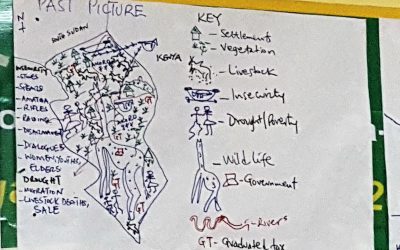 PAST PICTURE
N
SOUTH SUDAN
KENYA
INSECURITY
SPEARS
RIFLES
RAIDING
DIALOGUES
WOMEN, YOUTHS,
ELDERS
DROUGHT
MIGRATION
LIVESTOCK DEATHS,
SALE
KEY
Settlements
Vegetation
Livestock
Insecurity
Drought/Poverty
Wildlife
Government
Rivers
GT- Graduated tax